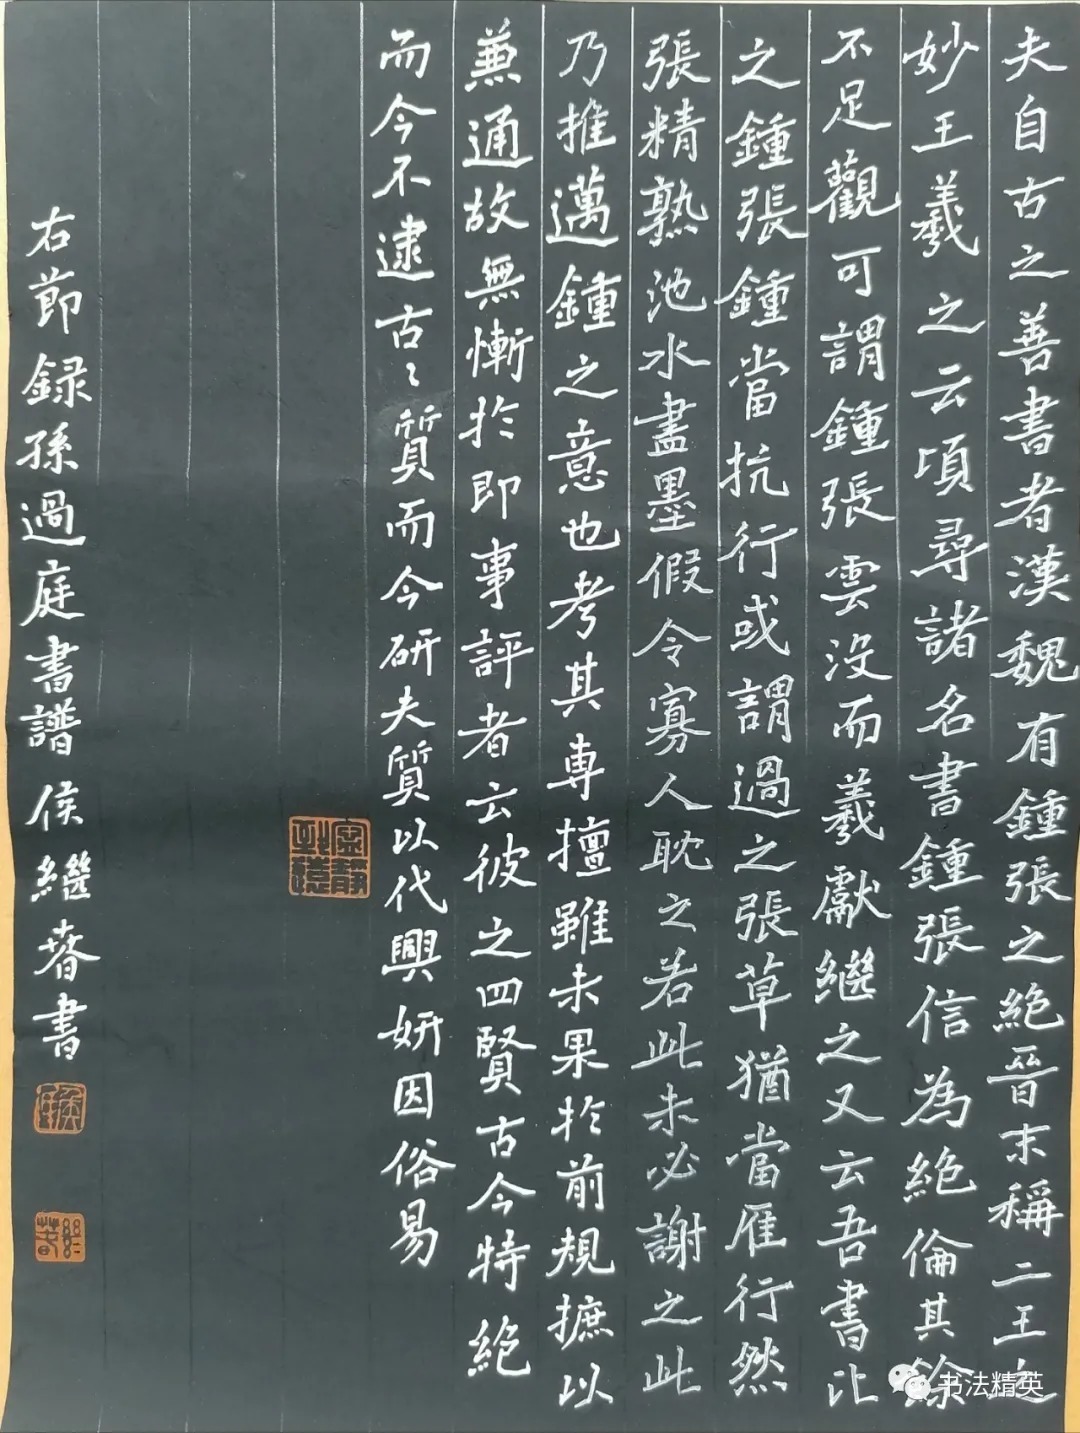 夫自古之善書者漢魏有鍾張之絶晉末稱二王之
妙王羲之云頃尋諸名書鍾張信為絶倫其餘
不足觀可謂鍾張雲沒而羲獻繼之又云吾書比
之鍾張鍾當抗行或謂過之張草猶當雁行然
張精熟池水盡墨假令寡人耽之若此未必謝之此
乃推邁鍾之意也考其專擅雖未果於前規摭以
兼通故無慚於即事評者云彼之四賢古今特絶
而今不逮古〻質而今研夫質以代興妍因俗易
右節録孫過庭書譜侯繼春書
书法精英